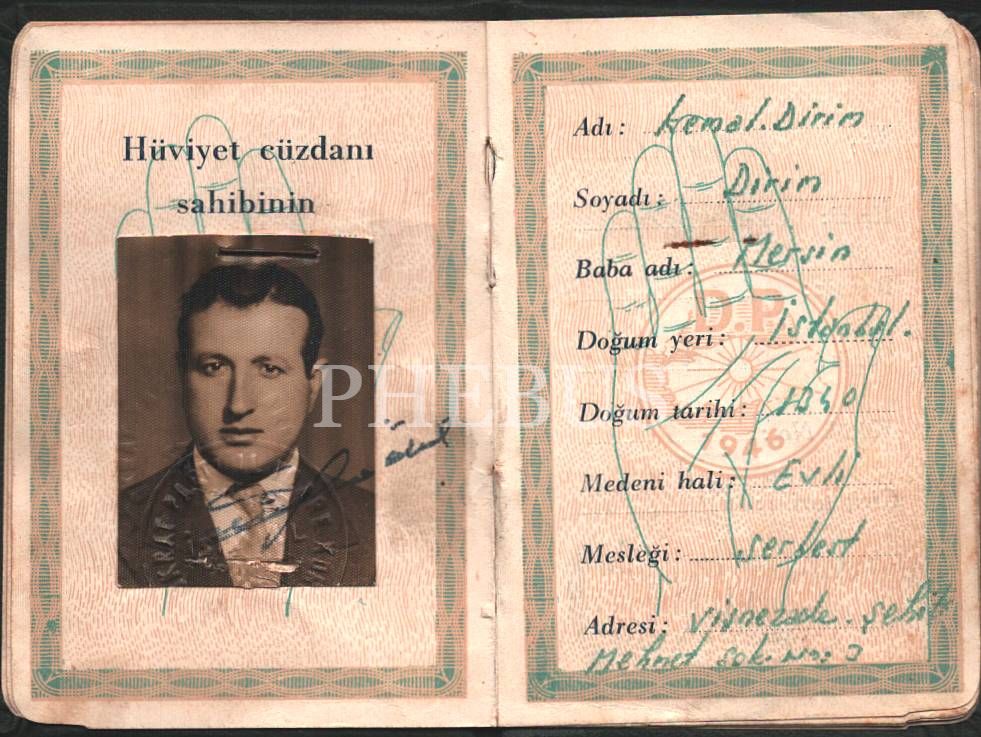 Hüviyet cüzdanı
sahibinin
Adı : Kemal. Dirim
Soyadı : Dirim
Baba adı : Mersin
D.P.
Doğum yeri : İstanbul.
PHEBUS
Doğum tarihi : 1340
1946
Medeni hali : Evli
Mesleği : serbest
Adresi : Vişnezade. Şehit
Mehmet Sok. No: 3